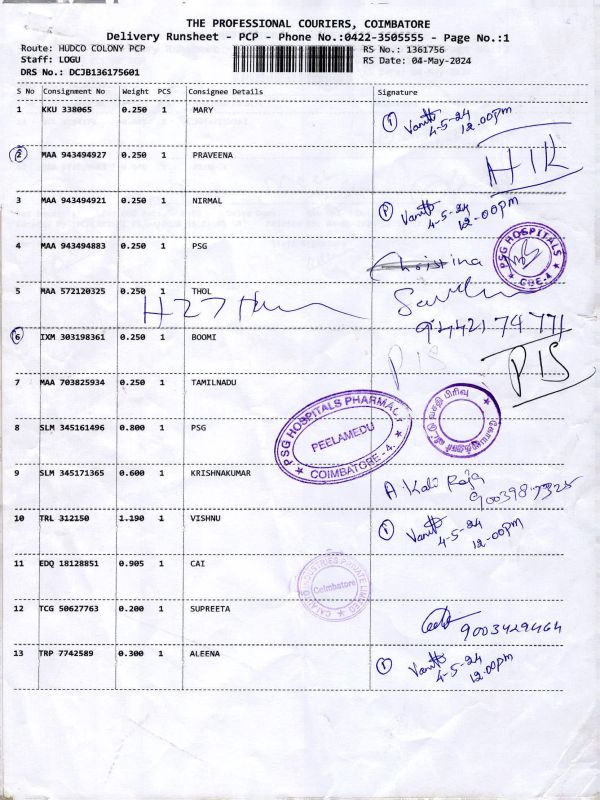 THE PROFESSIONAL COURIERS, COIMBATORE
Delivery Runsheet - PCP - Phone No.:0422-3505555 - Page No.:1
Route: HUDCO COLONY PCP
Staff: LOGU
DRS No.: DCJB136175601
RS No.: 1361756
RS Date: 04-May-2024
S No Consignment No Weight PCS Consignee Details Signature
1 KKU 338065 0.250 1 MARY
1 4-5-24 12.00pm
2 MAA 943494927 0.250 1 PRAVEENA
3 MAA 943494921 0.250 1 NIRMAL
4-5-24 12-00pm
4 MAA 943494883 0.250 1 PSG
Christina
PSG HOSPITALS CBE-4
5 MAA 572120325 0.250 1 THOL
H27
94421 74 771
6 IXM 303198361 0.250 1 BOOMI
PIS
PIS
7 MAA 703825934 0.250 1 TAMILNADU
8 SLM 345161496 0.800 1 PSG
PSG HOSPITALS PHARMACY
PEELAMEDU
COIMBATORE - 4.
9 SLM 345171365 0.600 1 KRISHNAKUMAR
A. Kali Raja
10 TRL 312150 1.190 1 VISHNU
1 4-5-24 12.00pm
11 EDQ 18128851 0.905 1 CAI
INDUSTRIES PRIVATE LIMITED
Coimbatore
12 TCG 50627763 0.200 1 SUPREETA
9003429464
13 TRP 7742589 0.300 1 ALEENA
1 4-5-24 12.00pm